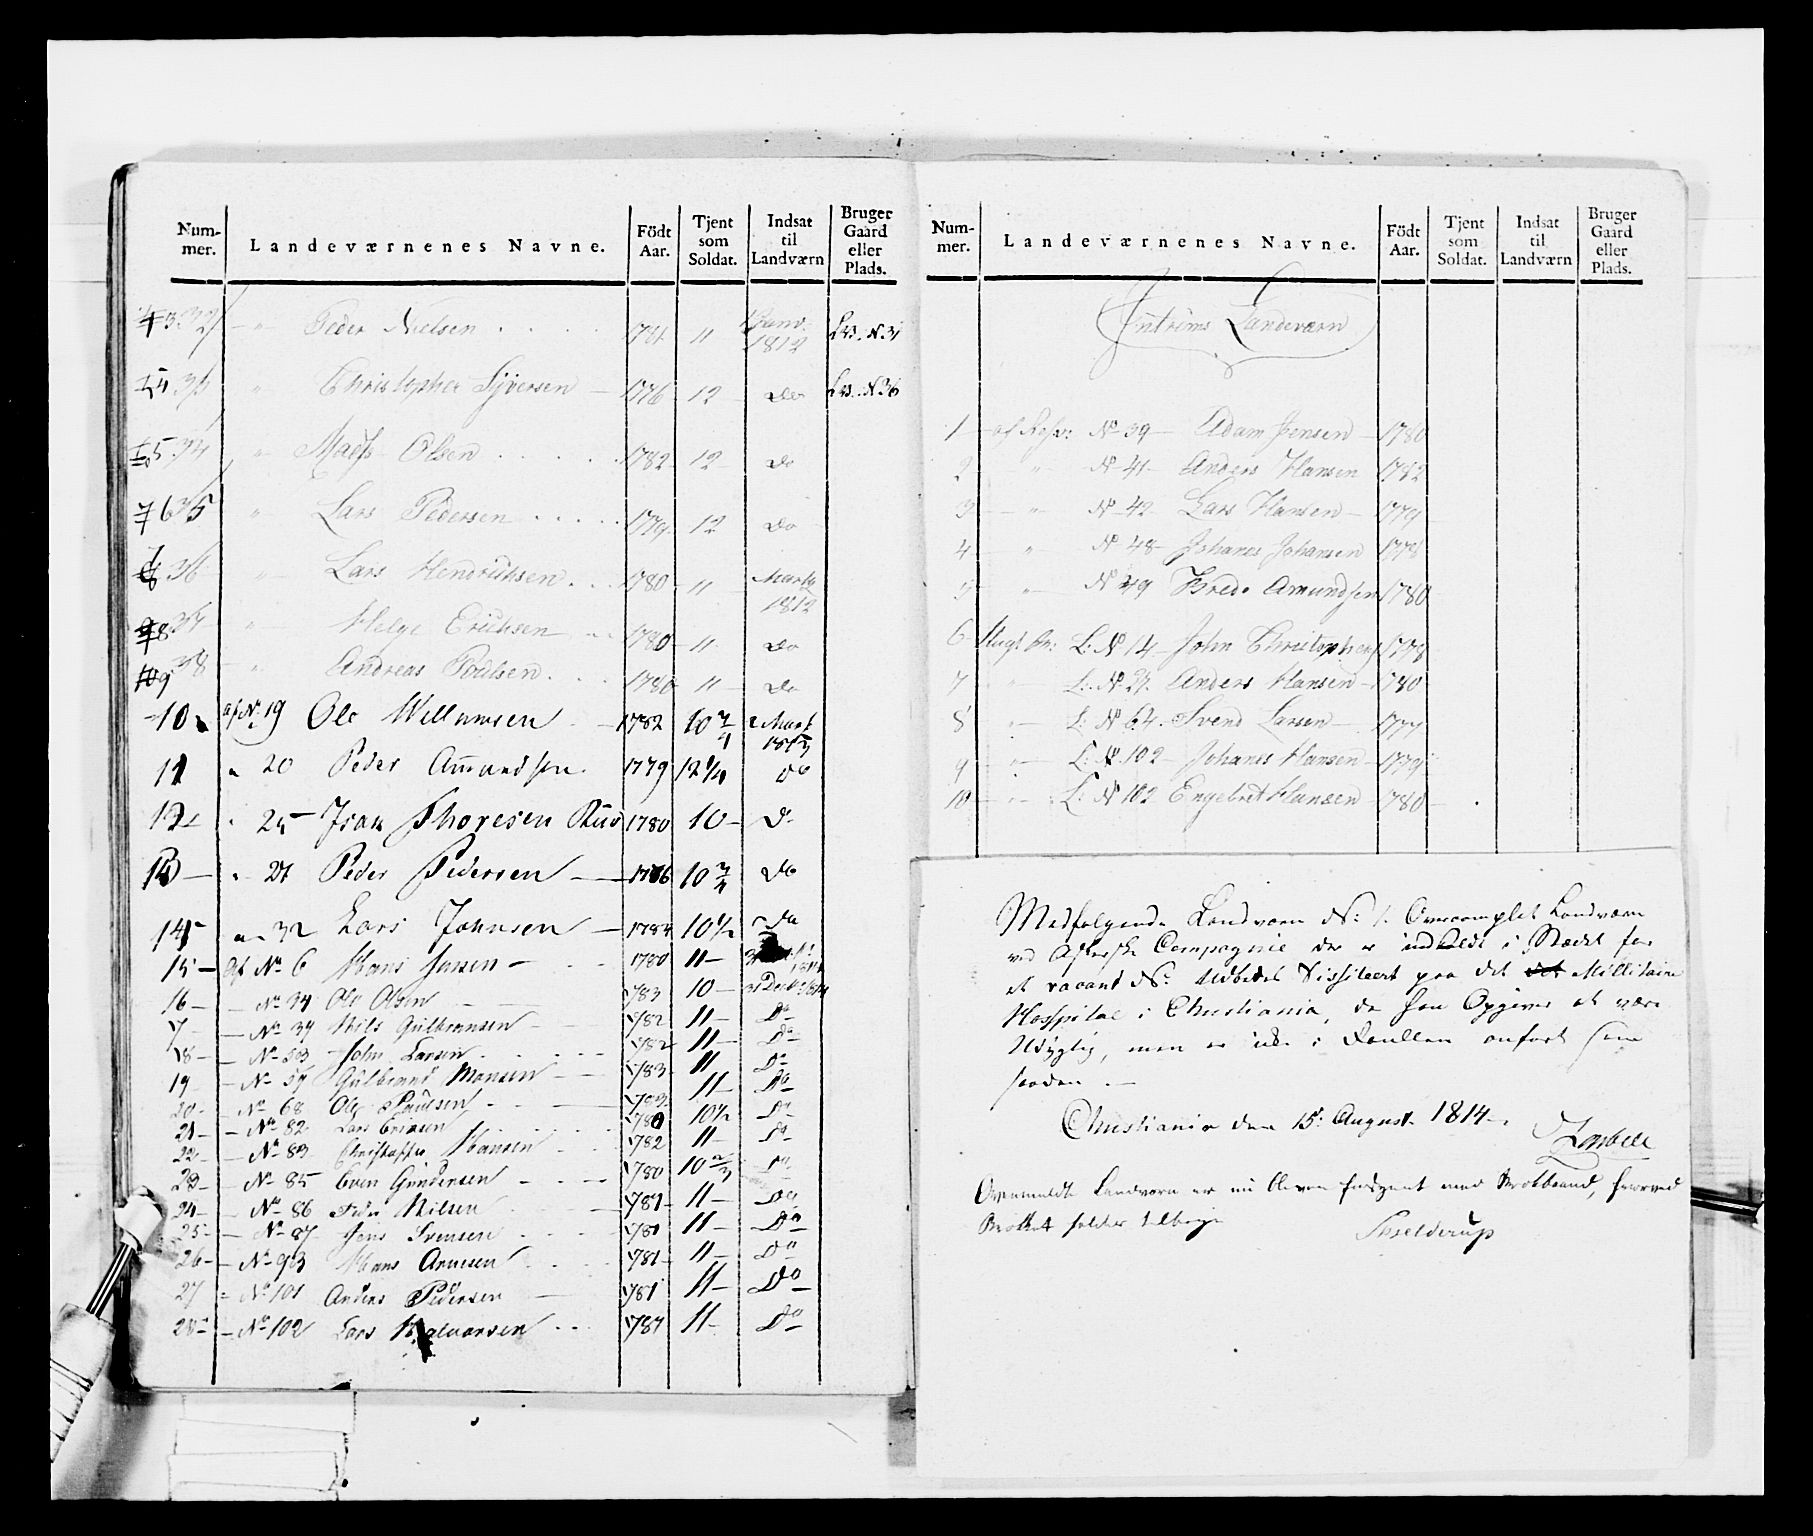 Num-mer. Landeværnenes Navne. Födt Aar. Tjent som Soldat. Indsat til Landværn Bruger Gaard eller Plads.
Peder Nielsen 1781 11 1812
Christopher Syversen 1776 12 do
34 Mads Olsen 1782 12 do
35 Lars Pedersen 1779 12 do
36 Lars Hendrichsen 1780 11 Marty 1812
Helge Erichsen 1780 11 do
38 Andreas Poulsen 1780 11 do
10 af No 19 Ole Willumsen 1782 10 3/4 Mart 1813
11 " 20 Peder Amundsen 1779 12 1/4 do
12 " 25 Isak Thoresen Ruud 1780 10 do
13 " 27 Peder Pedersen 10 3/4 do
14 " 32 Lars Johnsen 10 1/2 do
15 af No 6 Hans Jensen 1780 11
16 No 34 Ole Olsen 1783 10
17 No 39 Nils Gulbransen 1782 11 Do
18 No 53 John Larsen 1782 11 Do
19 No 59 Gulbrand Monsen 1783 11 Do
20 No 68 Ole Paulsen 11 Do
21 No 82 Lars Ericsen 1780 10 1/2 Do
22 No 83 Christopher Hansen 1782 11 Do
23 No 85 Even Gundersen 1780 10 2/3 Do
24 No 86 Nilsen 1781 11 Do
25 No 87 Jens Svensen 1781 11 Do
26 No 93 Hans Arnesen 1781 11 Do
27 No 101 Anders Pedersen 1781 11 Do
28 No 102 Lars Halvorsen 1781 11 Do
Num-mer. Landeværnenes Navne. Födt Aar. Tjent som Soldat. Indsat til Landværn Bruger Gaard eller Plads.
Intrims Landeværn
1 af Resv: No 39 Adam Jensen 1780
2 " No 41 Anders Hansen 1782
3 " No 42 Lars Hansen 1779
4 " No 48 Johanes Johansen 1778
5 " No 49 Brede Amundsen 1780
6 L: No 14 John Christophers 1778
7 " L: No 27 Anders Hansen 1780
8 " L: No 64 Svend Larsen 1777
9 " L: No 102 Johanes Hansen 1779
10 " L: No 102 Engebret Hansen 1780
Medfølgende Landværn No: 1. Overcomplet Landværn
ved Askerske Compagnie der er indkaldt i Stædet for
et vacant No: Udbedes Vissiteert paa det Millitaire
Hospital i Christiania, da han Opgiver at være
Udygtig, men er ikke i Roullen anført som
saadan.
Christiania den 15: August 1814.
Ovenmeldte Landværn er nu bleven forsynet med Brokbaand, hvorved
Brokket holdes tilbage